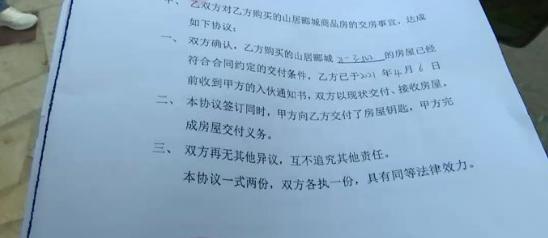 甲、乙双方对乙方购买的山居郦城商品房的交房事宜，达成
如下协议：
一、双方确认，乙方购买的山居郦城 的房屋已经
符合合同约定的交付条件，乙方已于2021年4月6日
前收到甲方的入伙通知书，双方以现状交付、接收房屋，
二、本协议签订同时，甲方向乙方交付了房屋钥匙，甲方完
成房屋交付义务。
三、双方再无其他异议，互不追究其他责任。
本协议一式两份，双方各执一份，具有同等法律效力。